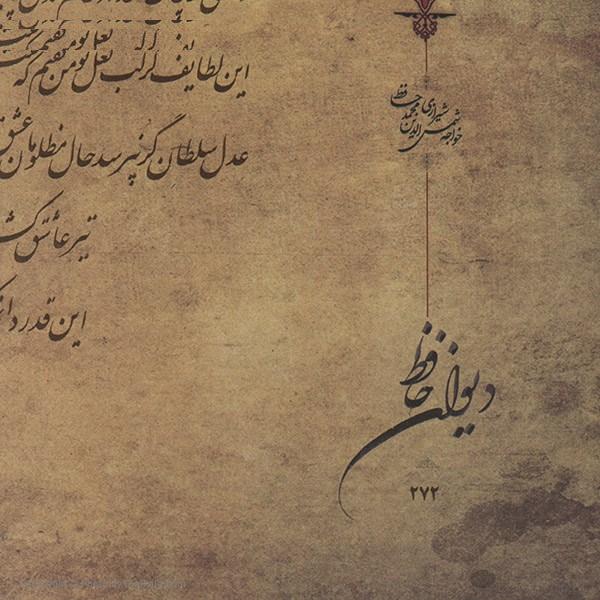 این لطایف کز لب لعل تو من گفتم که
عدل سلطان گر نپرسد حال مظلومان عشق
تیر عاشق کش
این قدر دانم
خواجه شمس الدین محمد حافظ شیرازی
دیوان حافظ
۲۷۲